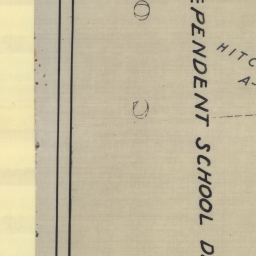 EPENDENT SCHOOL D
HITC
A-